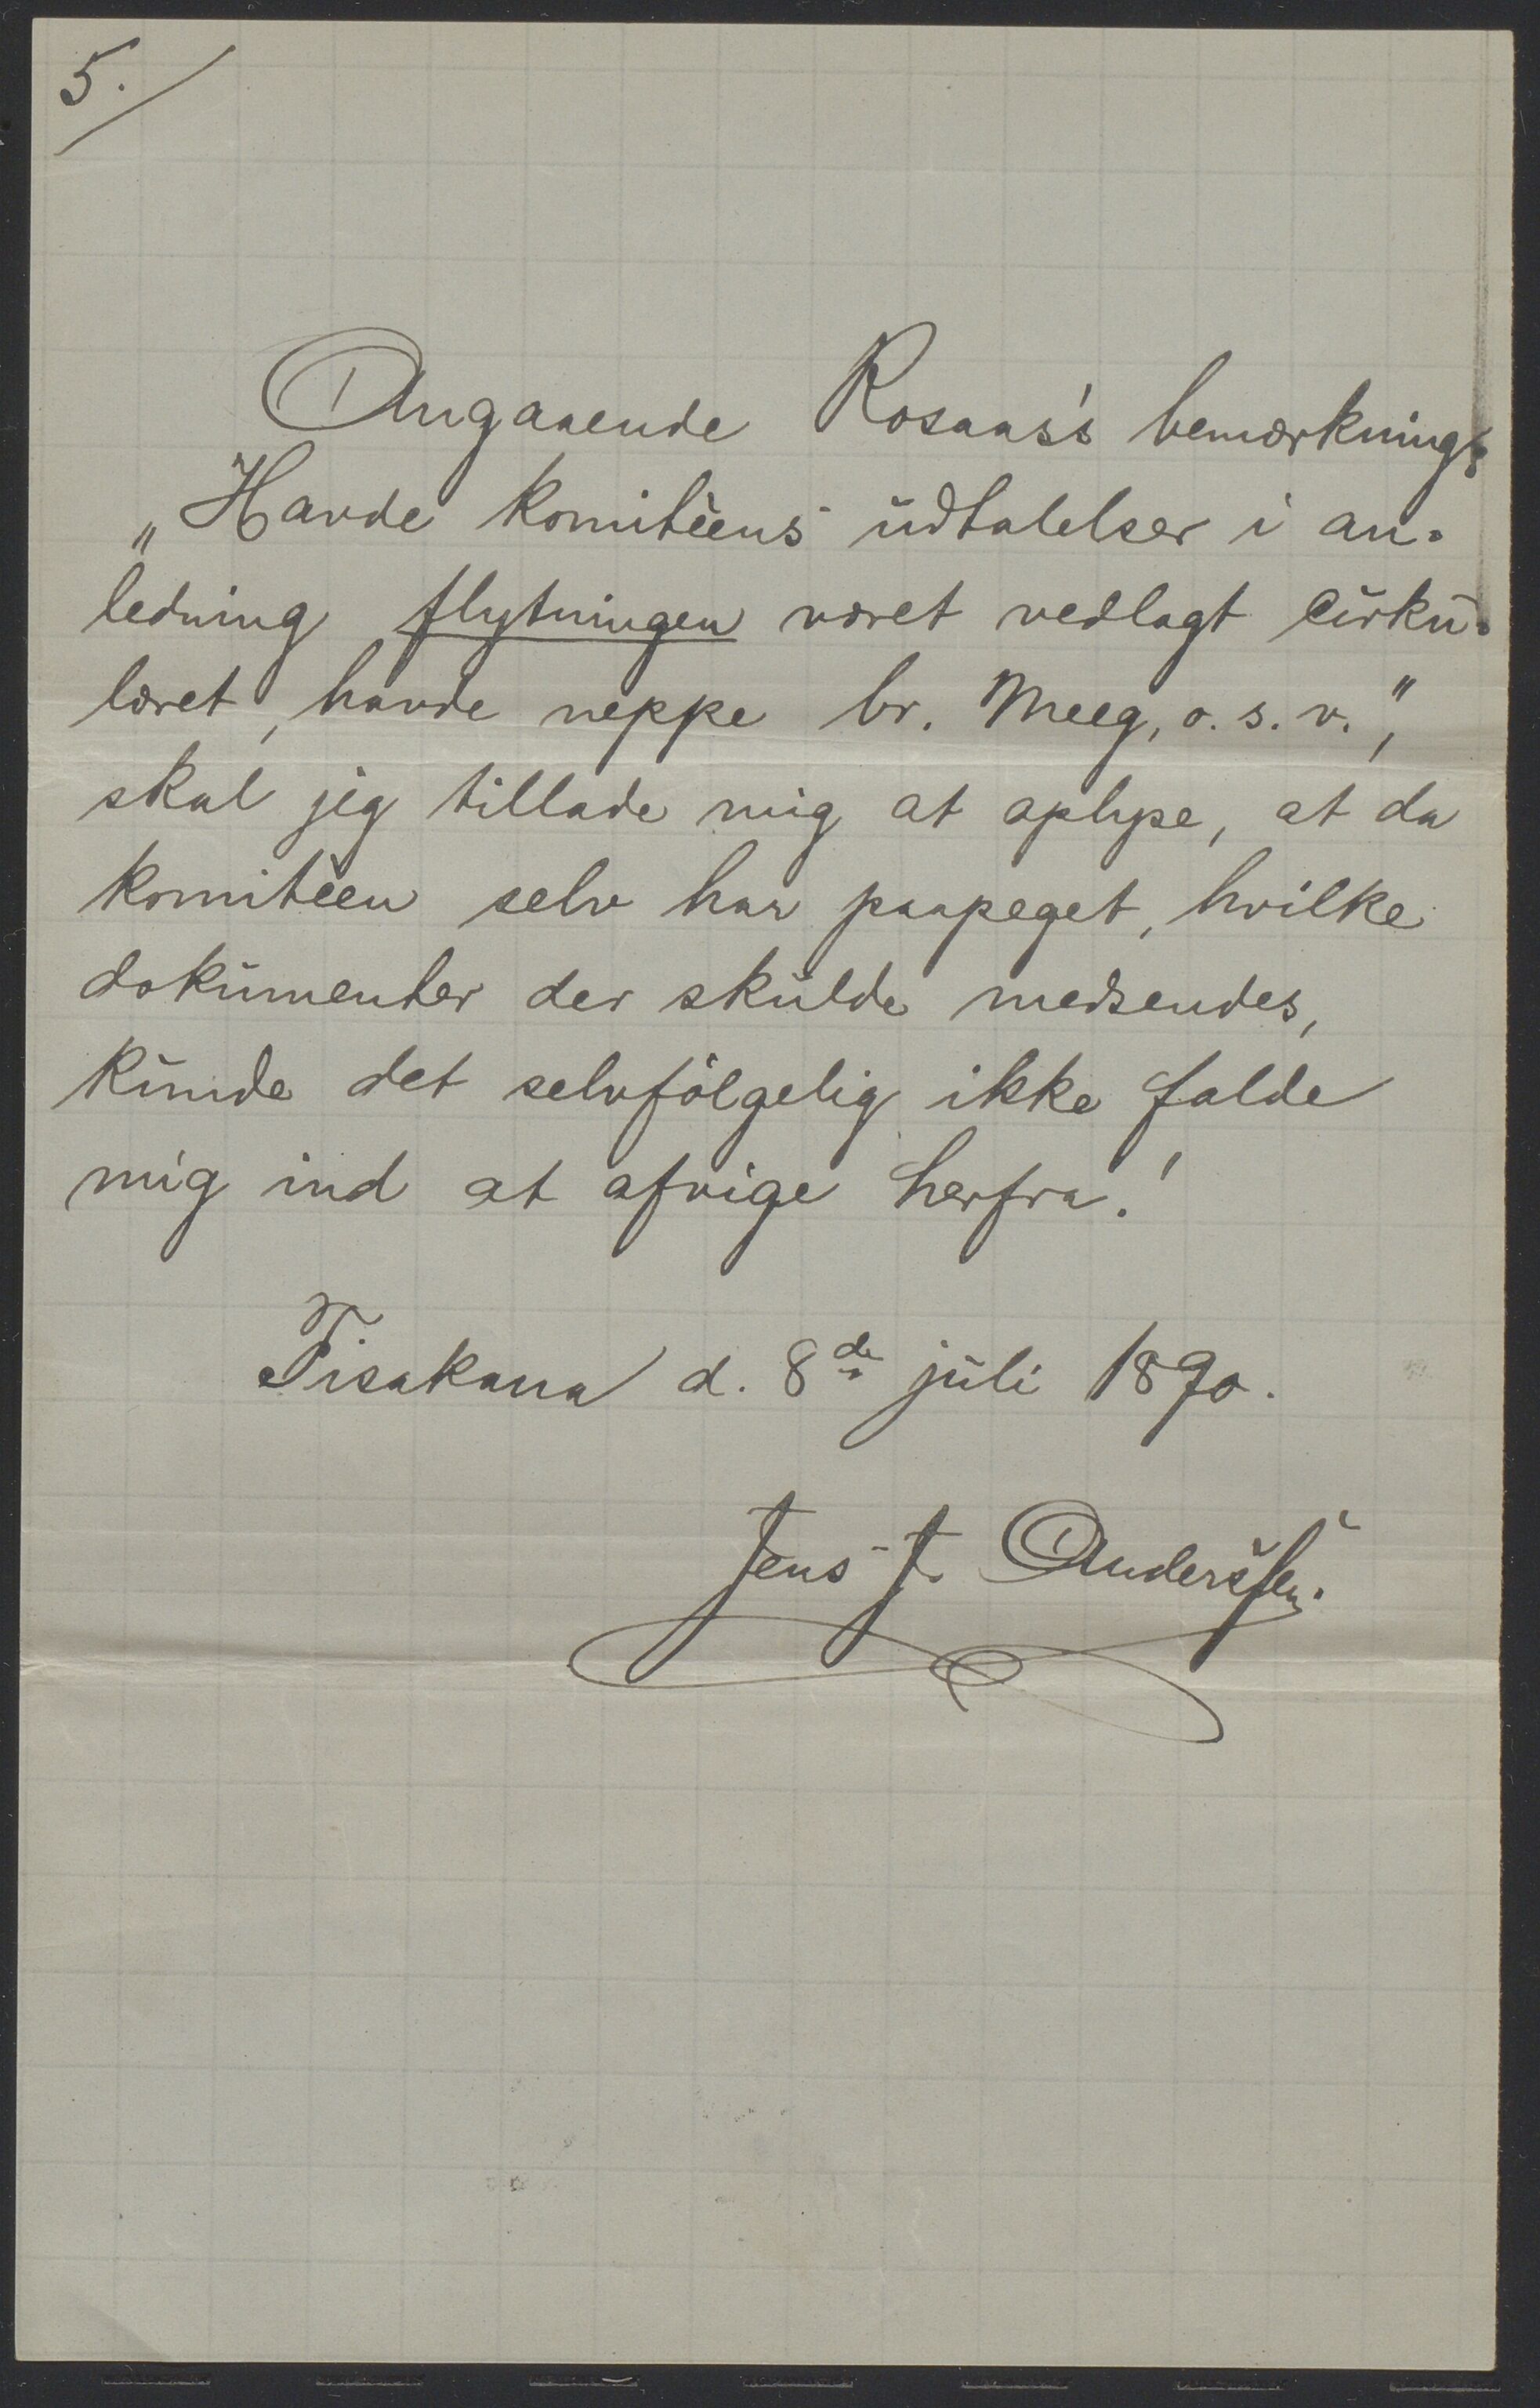 5.
Angaaende Rosaas's bemærkning:
„Havde komitèens udtalelser i an-
ledning flytningen været vedlagt cirku-
læret, havde neppe br. Meeg, o. s. v.",
skal jeg tillade mig at oplyse, at da
komitèen selv har paapeget, hvilke
dokumenter der skulde medsendes,
kunde det selvfölgelig ikke falde
mig ind at afvige herfra!
Tisakana d. 8de juli 1890.
Jens J. Anderssen.